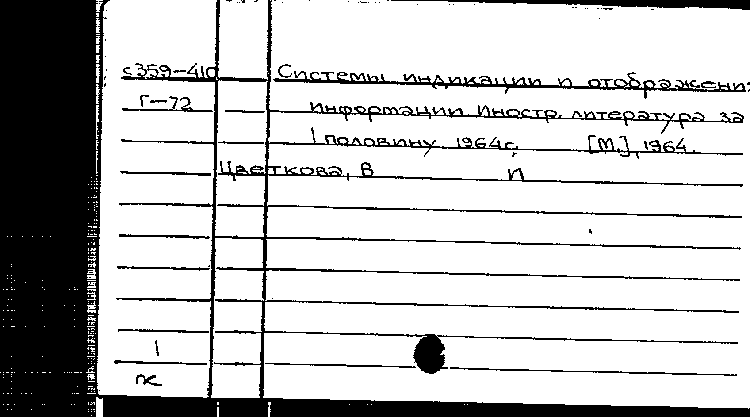 с359-410 Системы индикации и отображени
Г-72 информации Иностр. литература за
1 половину 1964г. [М.], 1964.
Цветкова, В п
1
пс